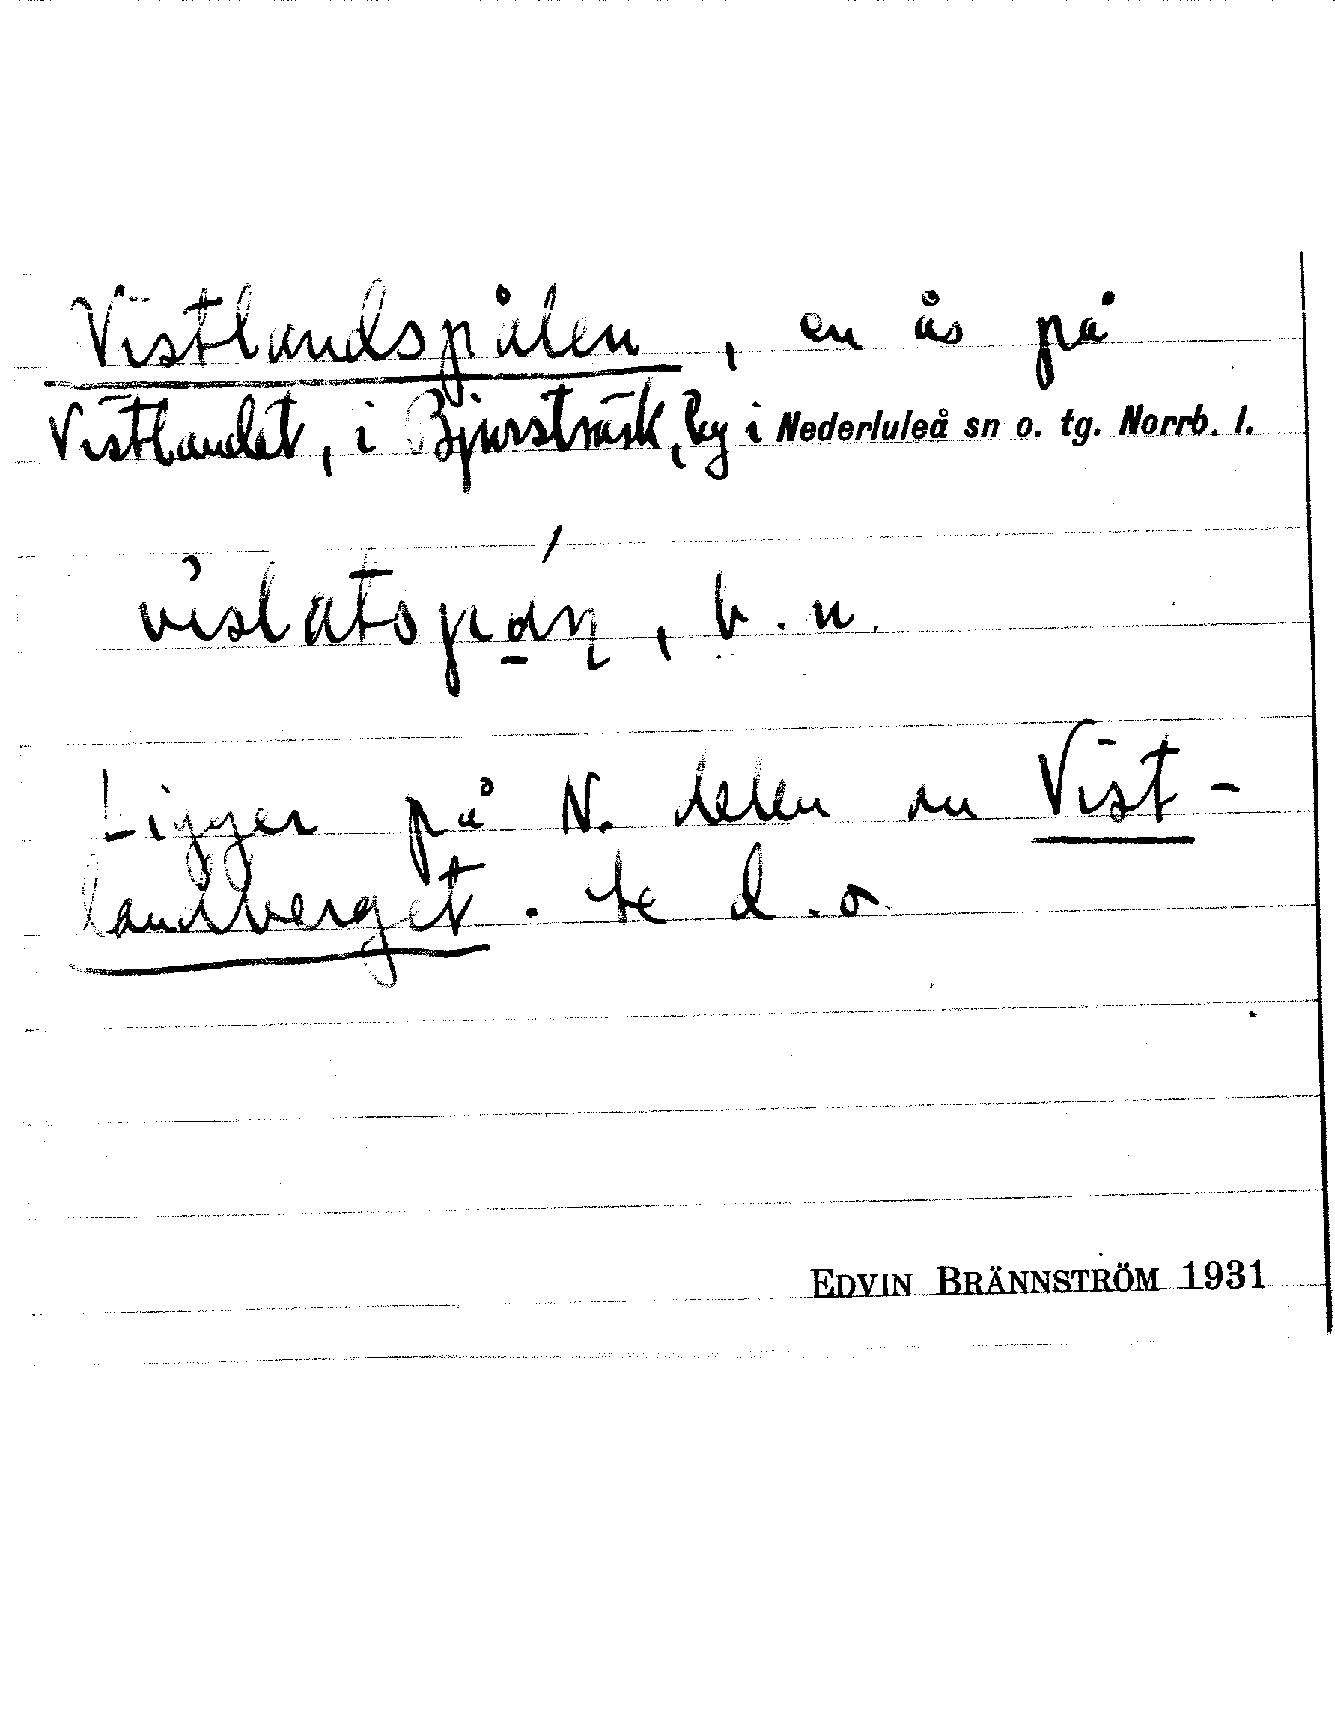 Västlandspålen, en ås på
Västlandet, i Bjursträsk, by i Nederluleå sn o. tg. Norrb. l.
b. n.
Ligger på N. delen av Väst-
landberget. Se d. o.
EDVIN BRÄNNSTRÖM 1931